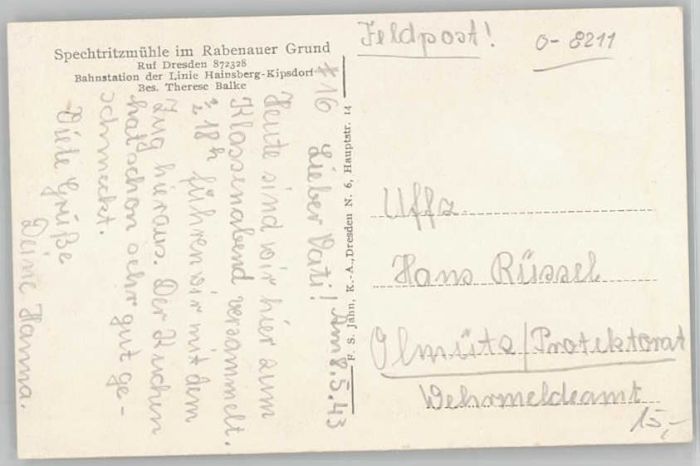 Spechtritzmühle im Rabenauer Grund
Ruf Dresden 872328
Bahnstation der Linie Hainsberg-Kipsdorf
Bes. Therese Balke
#16 Lieber Vati! Am 8.5.43
Heute sind wir hier zum
Klassenabend versammelt.
½ 18h führen wir mit dem
Zug hieraus. Der Kuchen
hat schon sehr gut ge-
schmeckt.
Viele Grüße
Deine Hanna.
F. S. Jahn, K.-A., Dresden N. 6, Hauptstr. 14
Feldpost!
0-8211
Uffz
Hans Rüssel
Olmütz/Protektorat
Wehrmeldeamt
15,-